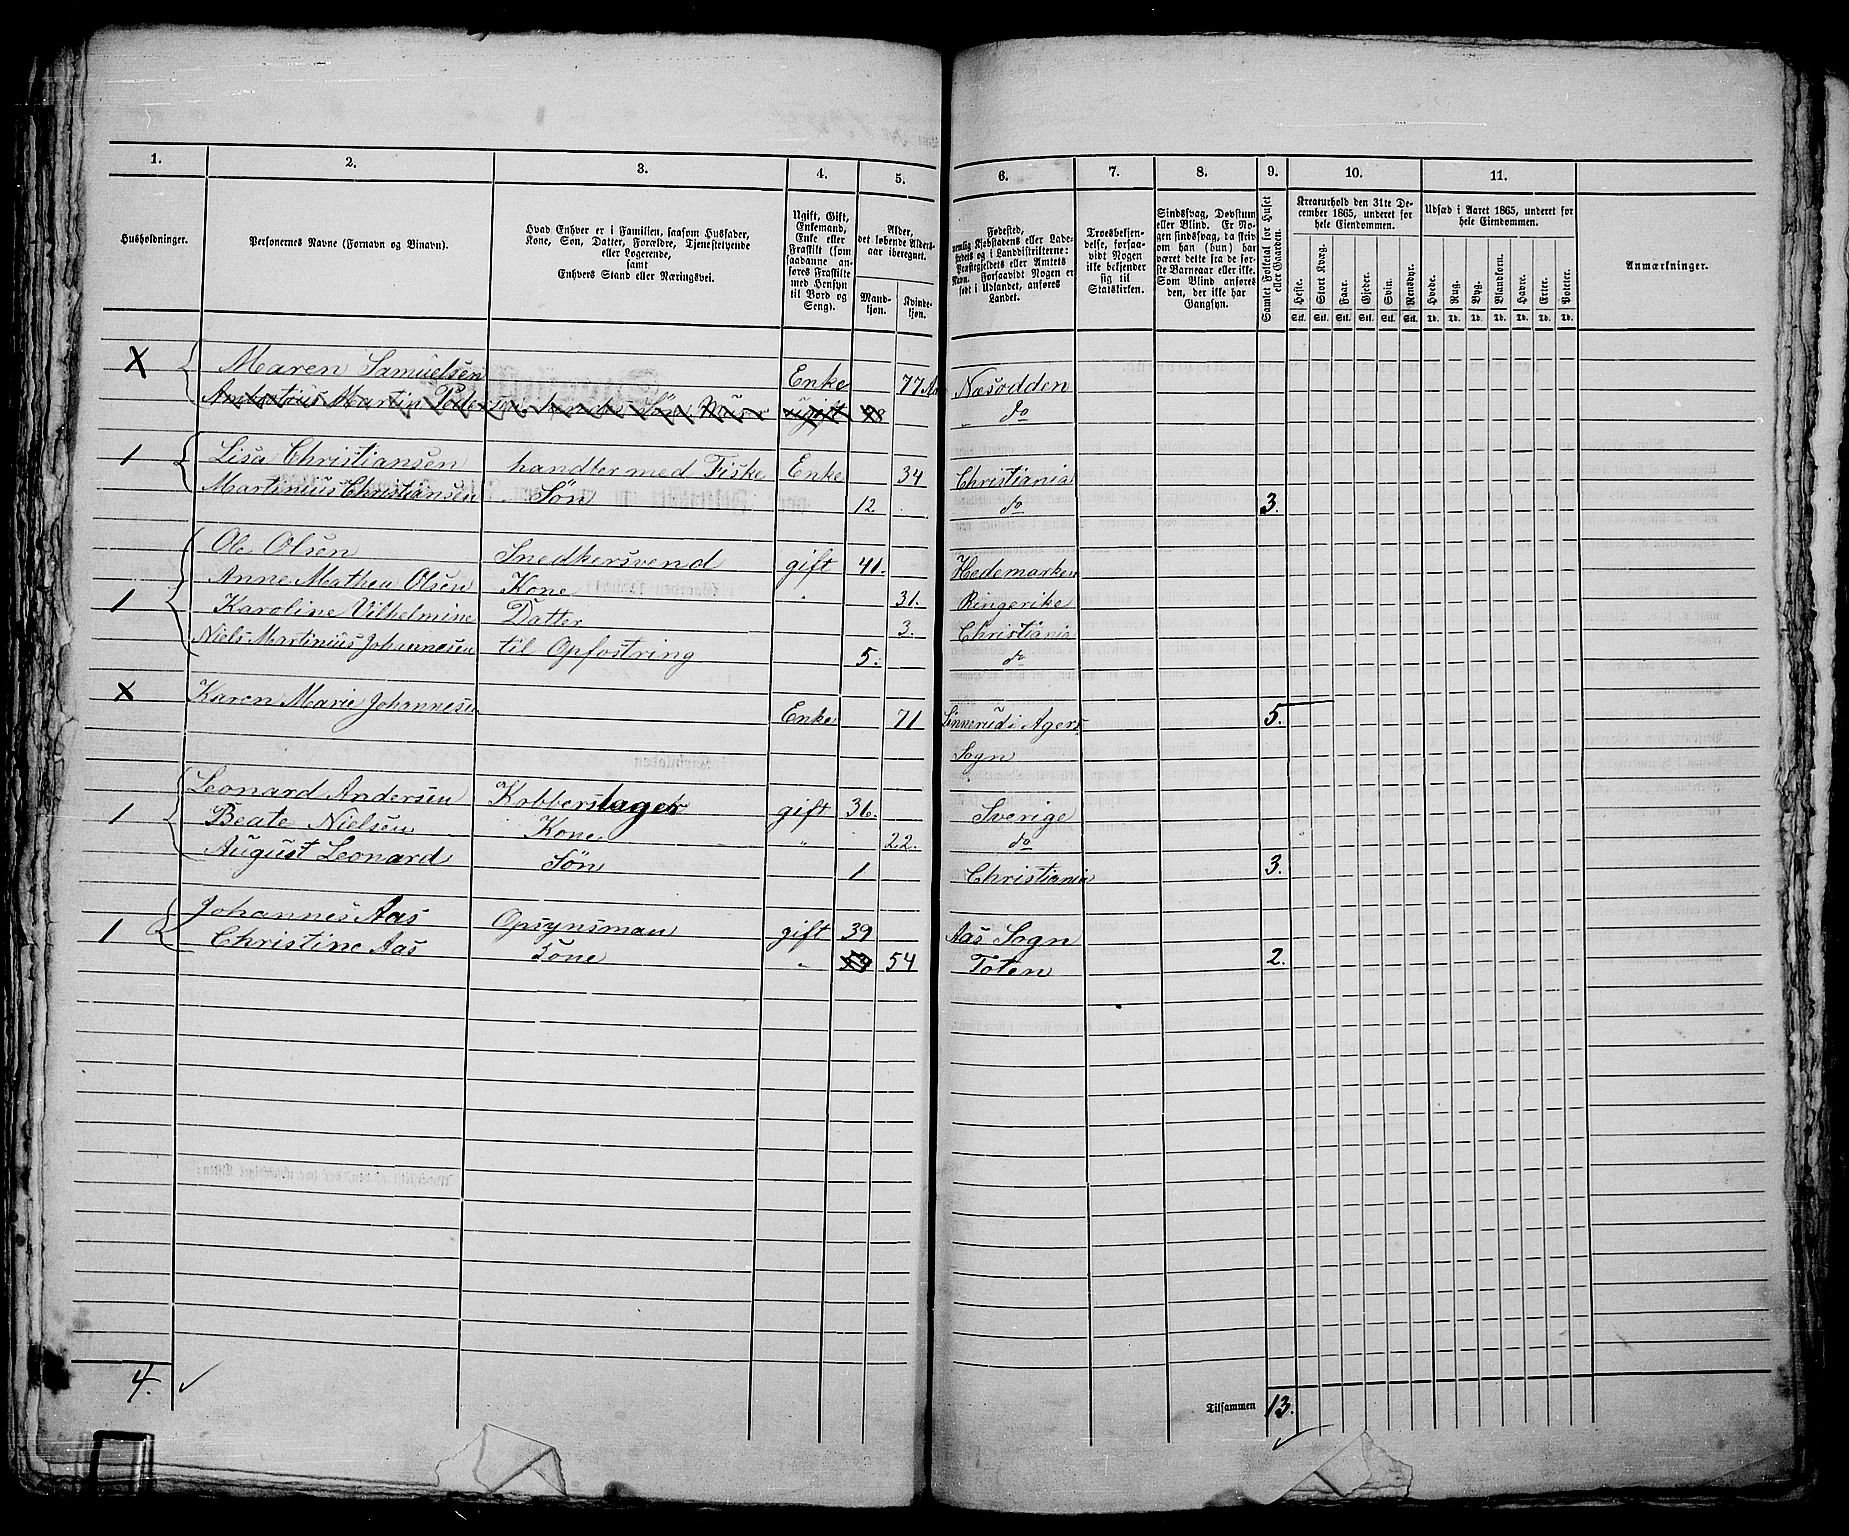 1. 2. 3. 4. 5. 6. 7. 8. 9. 10. 11.
Husholdninger.
Personernes Navne (Fornavn og Binavn).
Hvad Enhver er i Familien, saasom Husfader,
Kone, Søn, Datter, Forældre, Tjenestetyende
eller Logerende,
samt
Enhvers Stand eller Næringsvei.
Ugift, Gift,
Enkemand,
Enke eller
Fraskilt (som
saadanne an-
føres Fraskilte
med Hensyn
til Bord og
Seng).
Alder,
det løbende Alders-
aar iberegnet.
Mand-
kjøn.
Kvinde-
kjøn.
Fødested,
nemlig Kjøbstadens eller Lade-
stedets og i Landdistrikterne:
Præstegjeldets eller Amtets
Navn. Forsaavidt Nogen er
født i Udlandet, anføres
Landet.
Troesbekjen-
delse, forsaa-
vidt Nogen
ikke bekjender
sig til
Statskirken.
Sindssvag, Døvstum
eller Blind. Er No-
gen sindssvag, da skriv
om han (hun) har
været dette fra de før-
ste Barneaar eller ikke.
Som Blind anføres
den, der ikke har
Gangsyn.
Samlet Folketal for Huset
eller Gaarden.
Kreaturhold den 31te De-
cember 1865, underet for
hele Eiendommen.
Heste. Stort Kvæg. Faar. Gjeder. Svin. Rensdyr.
Stk. Stk. Stk. Stk. Stk. Stk.
Udsæd i Aaret 1865, underet for
hele Eiendommen.
Hvede. Rug. Byg. Blandkorn. Havre. Erter. Poteter.
Td. Td. Td. Td. Td. Td. Td.
Anmærkninger.
X Maren Samuelsen Enke 77 Næsodden
Martin Søn ugift 48 do
1 Lisa Christiansen handler med Fiske Enke 34 Christiania
Martinius Christiansen Søn 12 do 3.
Ole Olsen Snedkersvend gift 41. Hedemarken
Anne Mathea Olsen Kone " 31. Ringerike
1 Karoline Vilhelmine Datter 3. Christiania
Niels Martinius Johannesen til Opfostring 5. do
X Karen Marie Johannesen Enke 71 Linnerud i Agers 5.
Sogn
Leonard Andersen Kobberslager gift 36. Sverige
1 Beate Nielsen Kone " 22. do
August Leonard Søn 1 Christiania 3.
Johannes Aas Opsynsman gift 39 Aas Sogn
1 Christine Aas Kone " 54 Toten 2.
4.
Tilsammen 13.